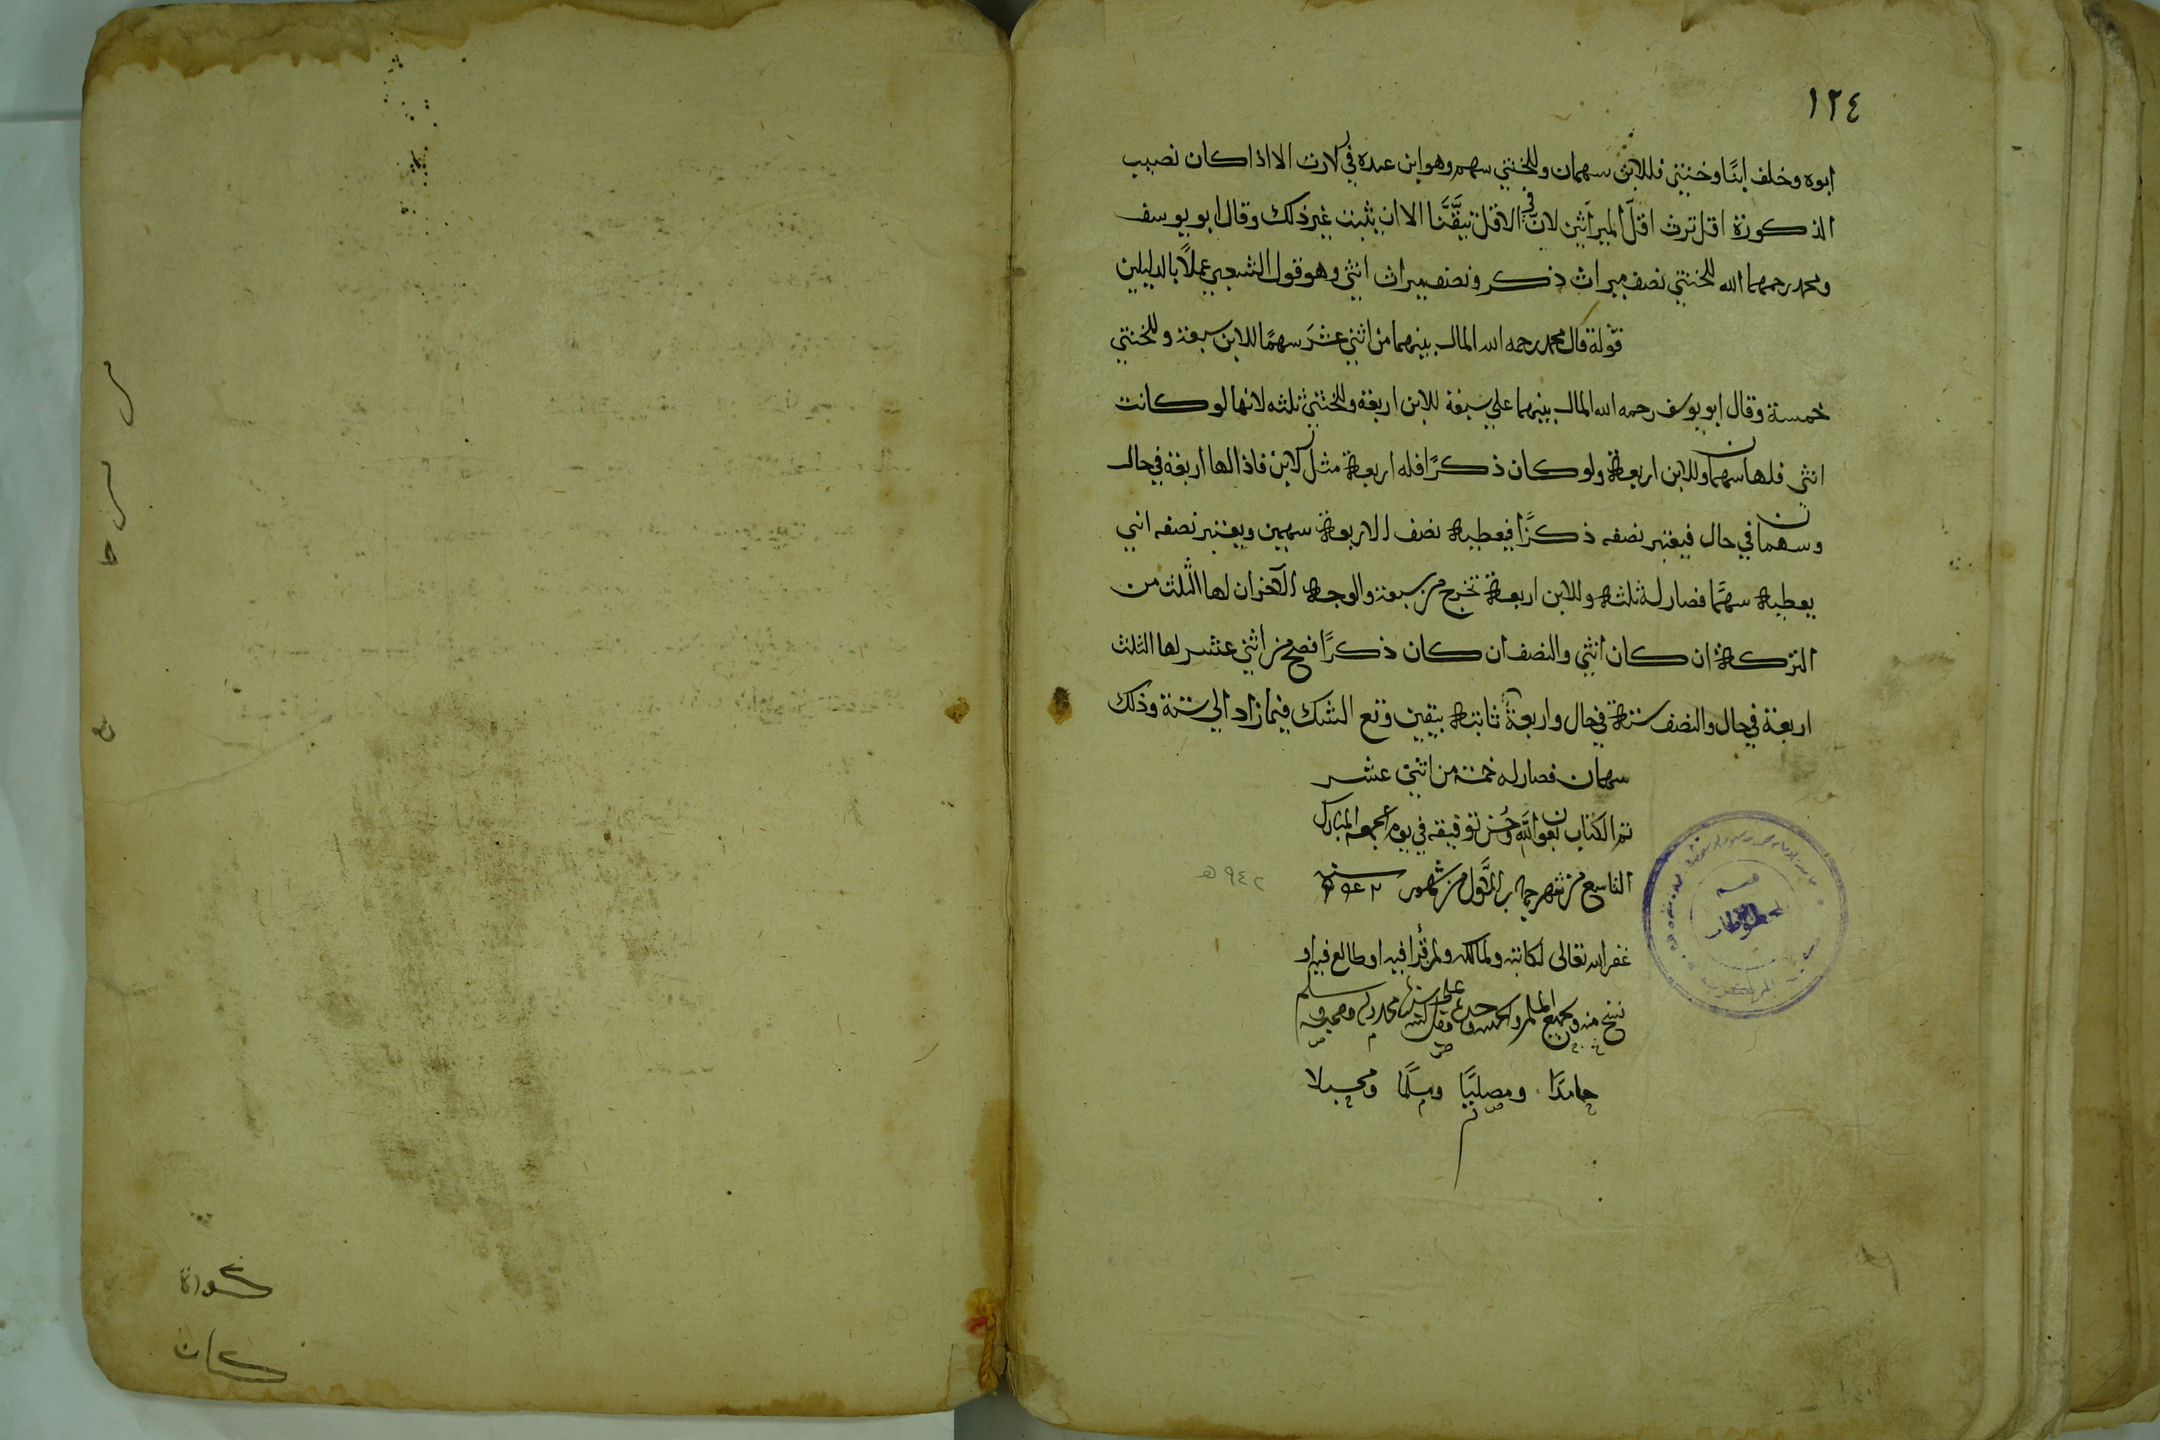 ١٢٤
ابوه وخلف ابنًا وخنثي فللابن سهمان وللخنثي سهم وهو ابن عنده في الارث الا اذا كان نصيب
الذكورة اقل ترث اقلّ الميراثين لانّ في الاقل تيقَّنا الا ان يثبت غير ذلك وقال ابو يوسف
ومحمد رحمهما الله للخنثي نصف ميراث ذكر ونصف ميراث انثي وهو قول الشعبي عملًا بالدليلين
قوله قال محمد رحمه الله المال بينهما من اثني عشر سهمًا للابن سبعة وللخنثي
خمسة وقال ابو يوسف رحمه الله المال بينهما علي سبعة للابن اربعة وللخنثي ثلثه لانها لو كانت
انثى فلها سهمان وللابن اربعة ولو كان ذكرًا فله اربعة مثل الابن فاذا لها اربعة في حال
وسهمان في حال فيعتبر نصفه ذكرًا فيعطيه نصف الاربعة سهمين ويعتبر نصفه انثي
يعطيه سهمًا فصار له ثلثه وللابن اربعة تخرج من سبعة والوجه الآخر ان لها الثلث من
التركة ان كان انثي والنصف ان كان ذكرًا فصح من اثني عشر لها الثلث
اربعة في حال والنصف ستة في حال واربعة ثابته بيقين وقع الشك فيما زاد الي ستة وذلك
سهمان فصار له خمسة من اثني عشر
تم الكتاب بعون الله وحسن توفيقه في يوم الجمعه المبارك
التاسع من شهر جماد الاول من شهور سنة ٩٤٢
٩٤٢ هـ
غفر الله تعالى لكاتبه ولمالكه ولمن قرا فيه او طالع فيه او
نسخ منه ولجميع المسلمين والحمد لله وحده وصلى الله على سيدنا محمد واله وصحبه وسلم
حامدًا ومصليًا ومسلمًا ومحسبلا